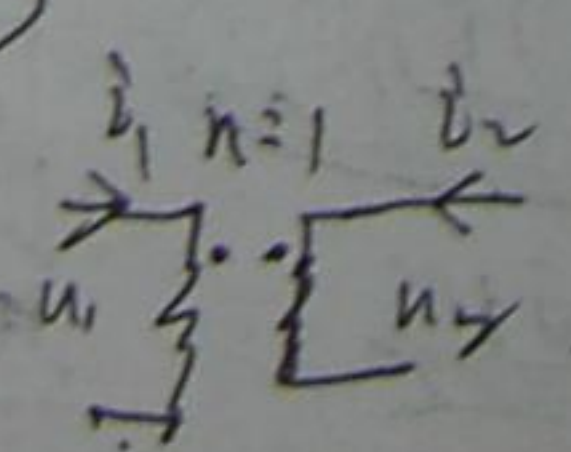 i₁ n:1 i₂
u₁ u₂